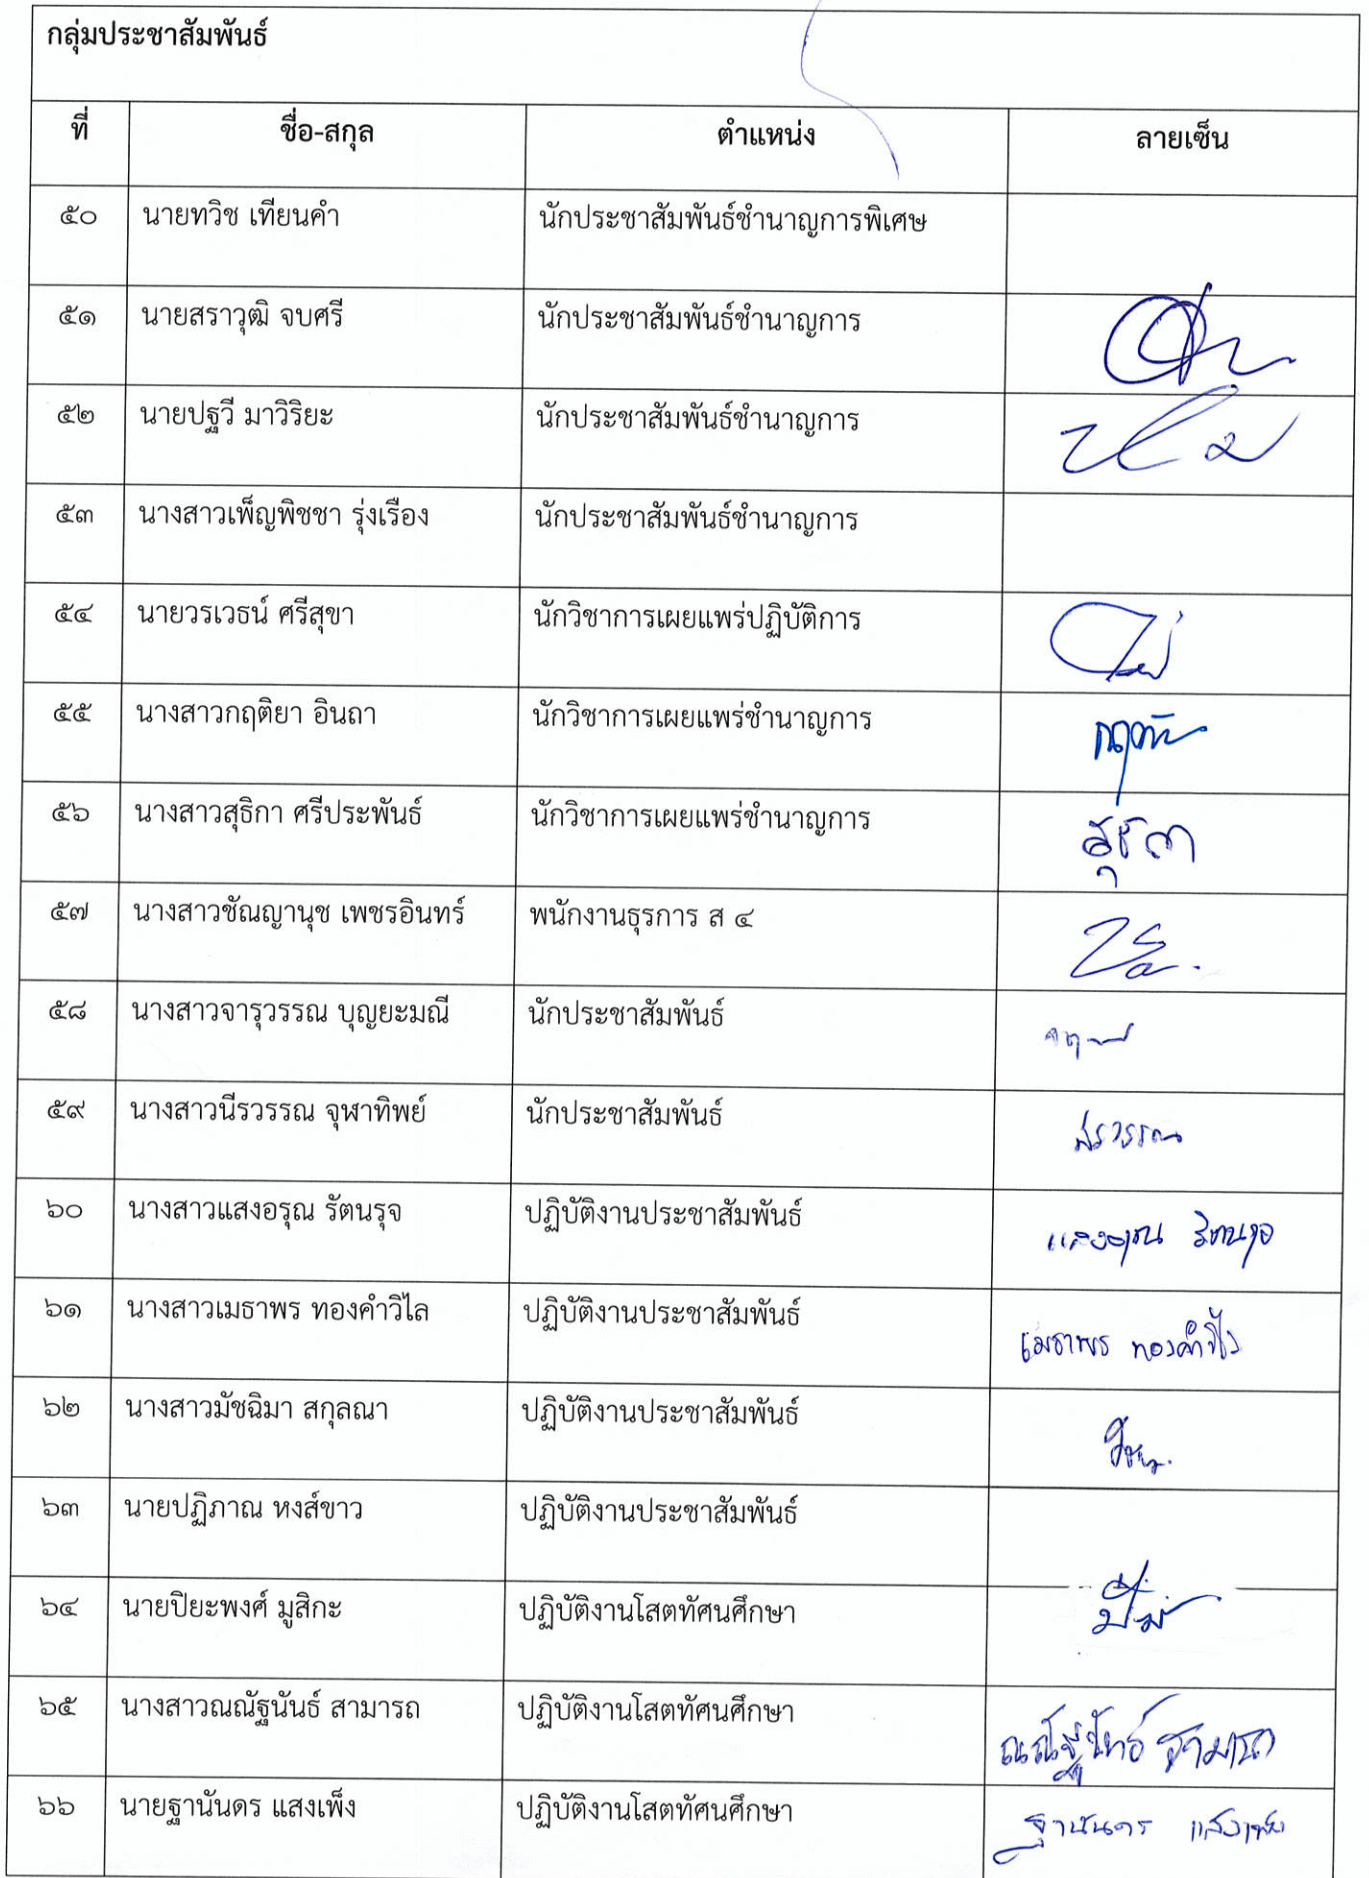 กลุ่มประชาสัมพันธ์
ที่ ชื่อ-สกุล ตำแหน่ง ลายเซ็น
๕๐ นายทวิช เทียนคำ นักประชาสัมพันธ์ชำนาญการพิเศษ
๕๑ นายสราวุฒิ จบศรี นักประชาสัมพันธ์ชำนาญการ
๕๒ นายปฐวี มาวิริยะ นักประชาสัมพันธ์ชำนาญการ
๕๓ นางสาวเพ็ญพิชชา รุ่งเรือง นักประชาสัมพันธ์ชำนาญการ
๕๔ นายวรเวธน์ ศรีสุขา นักวิชาการเผยแพร่ปฏิบัติการ
๕๕ นางสาวกฤติยา อินถา นักวิชาการเผยแพร่ชำนาญการ
๕๖ นางสาวสุธิกา ศรีประพันธ์ นักวิชาการเผยแพร่ชำนาญการ
๕๗ นางสาวชัณญานุช เพชรอินทร์ พนักงานธุรการ ส ๔
๕๘ นางสาวจารุวรรณ บุญยะมณี นักประชาสัมพันธ์
๕๙ นางสาวนีรวรรณ จุฬาทิพย์ นักประชาสัมพันธ์ นีรวรรณ
๖๐ นางสาวแสงอรุณ รัตนรุจ ปฏิบัติงานประชาสัมพันธ์ แสงอรุณ รัตนรุจ
๖๑ นางสาวเมธาพร ทองคำวิไล ปฏิบัติงานประชาสัมพันธ์ เมธาพร ทองคำวิไล
๖๒ นางสาวมัชฉิมา สกุลณา ปฏิบัติงานประชาสัมพันธ์
๖๓ นายปฏิภาณ หงส์ขาว ปฏิบัติงานประชาสัมพันธ์
๖๔ นายปิยะพงศ์ มูสิกะ ปฏิบัติงานโสตทัศนศึกษา
๖๕ นางสาวณณัฐนันธ์ สามารถ ปฏิบัติงานโสตทัศนศึกษา ณณัฐนันธ์ สามารถ
๖๖ นายฐานันดร แสงเพ็ง ปฏิบัติงานโสตทัศนศึกษา ฐานันดร แสงเพ็ง